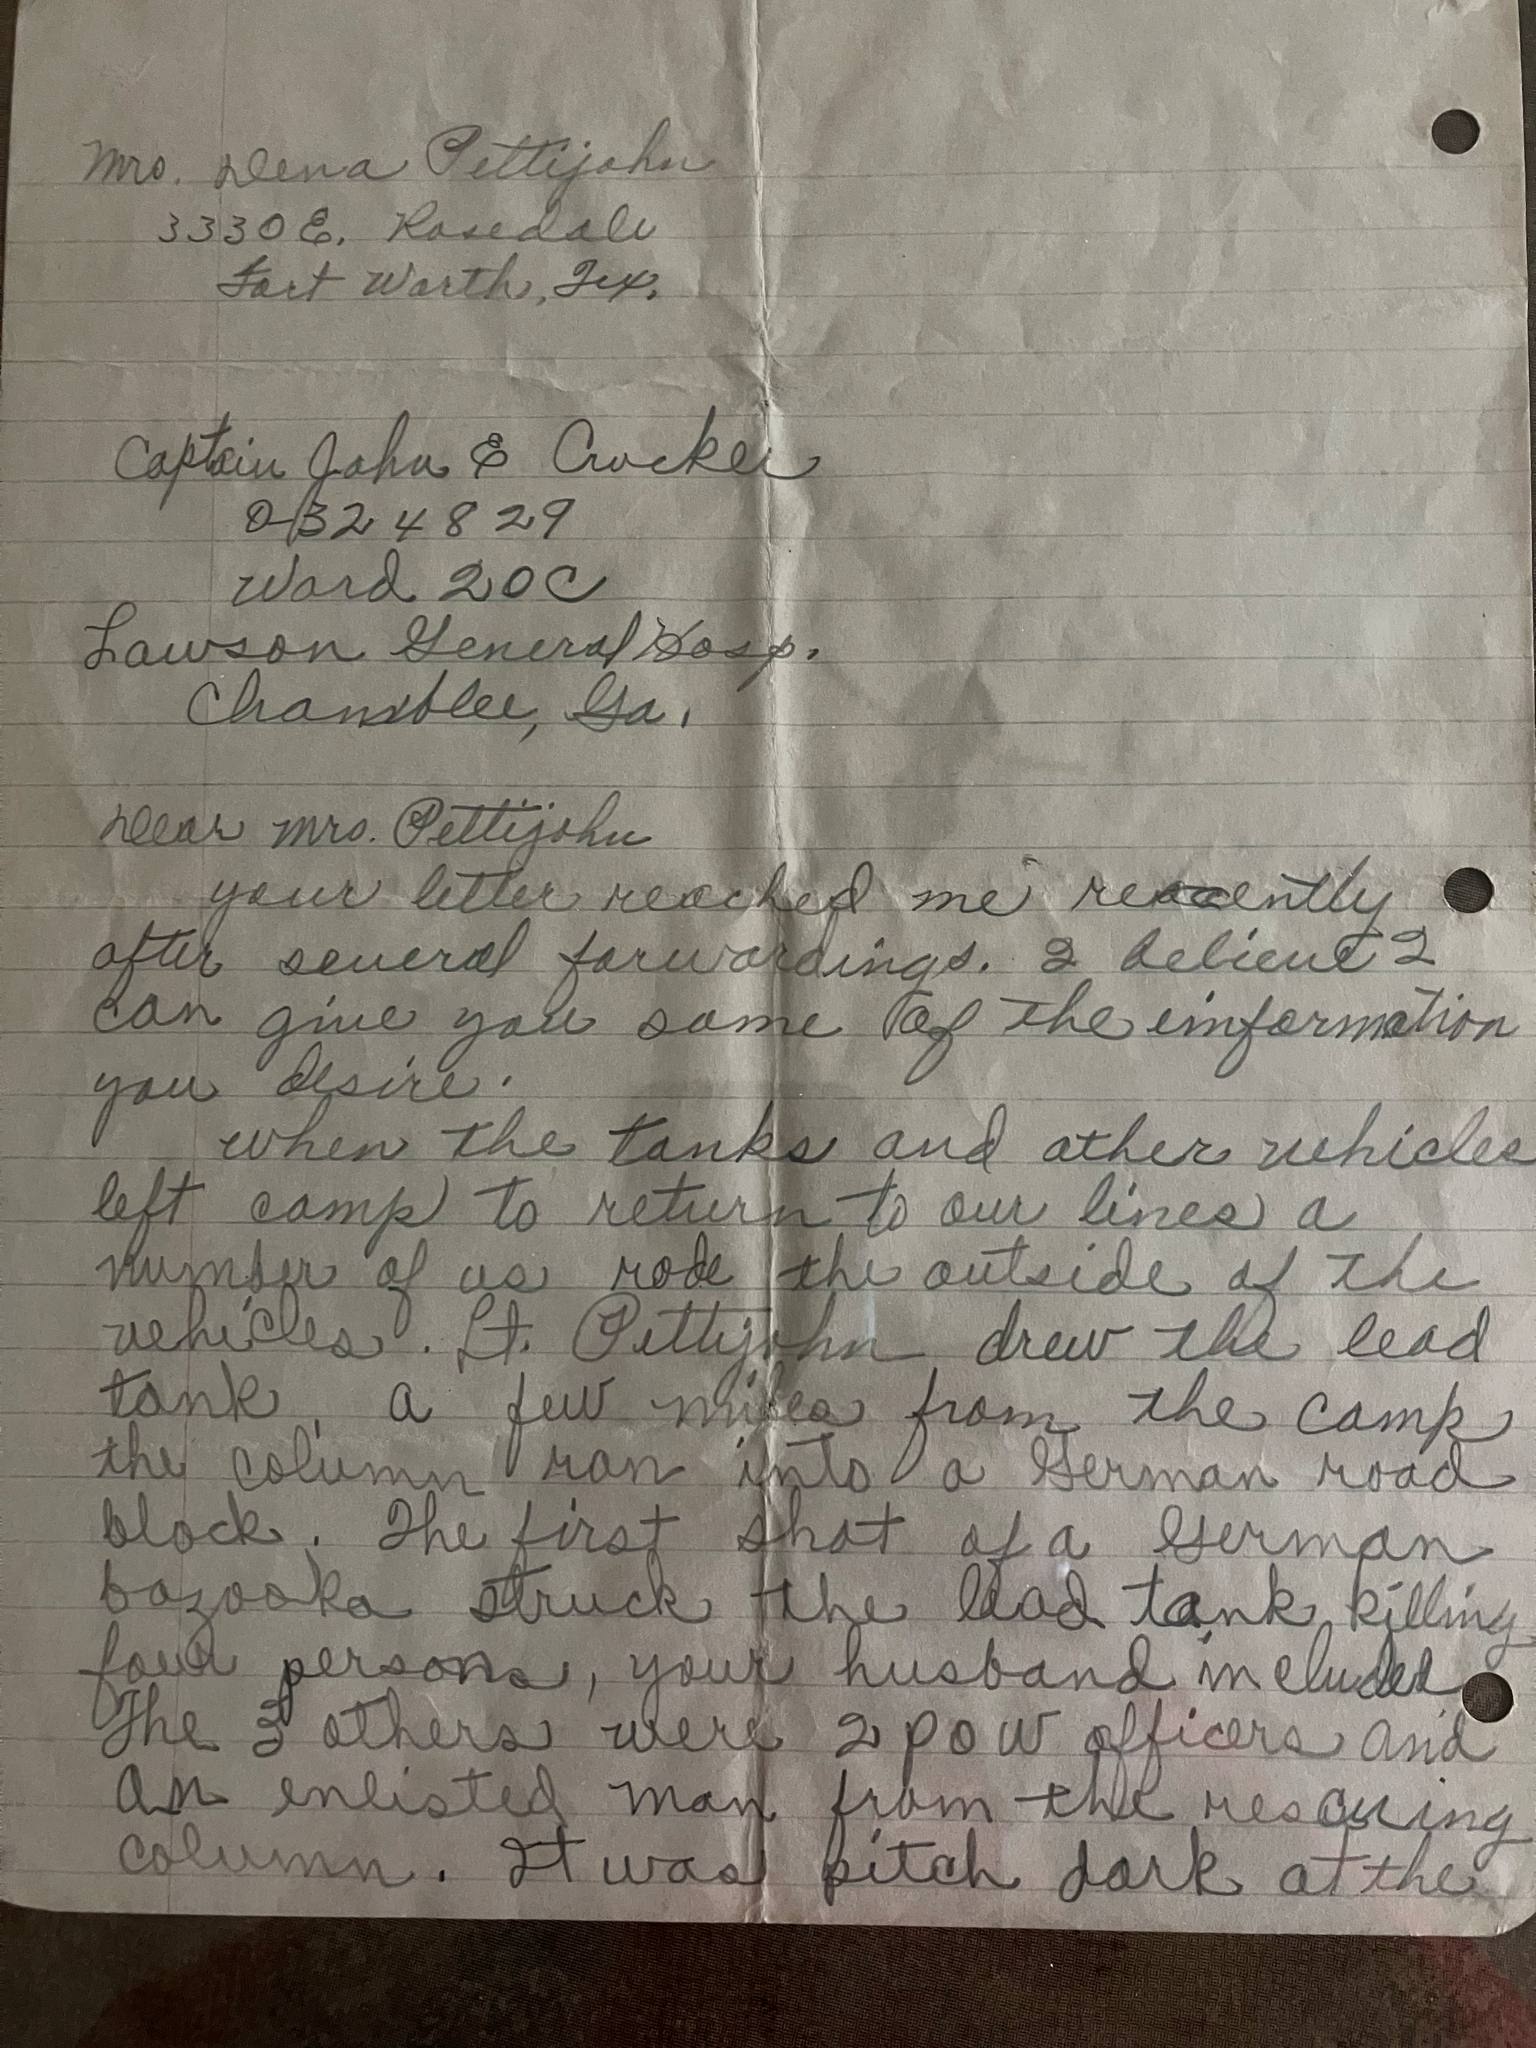 Mrs. Dena Pettijohn
3330 E. Rosedale
Fort Worth, Tex.
Captain John E Crocker
0-324829
Ward 20C
Lawson General Hosp.
Chamblee, Ga.
Dear Mrs. Pettijohn
your letter reached me recently
after several forwardings. I believe I
can give you some of the information
you desire.
when the tanks and other vehicles
left camp to return to our lines a
number of us rode the outside of the
vehicles. Lt. Pettijohn drew the lead
tank. a few miles from the camp
the column ran into a German road
block. The first shot of a German
bazooka struck the lead tank killing
four persons, your husband included
The 3 others were 2 POW officers and
an enlisted man from the rescuing
column. It was pitch dark at the